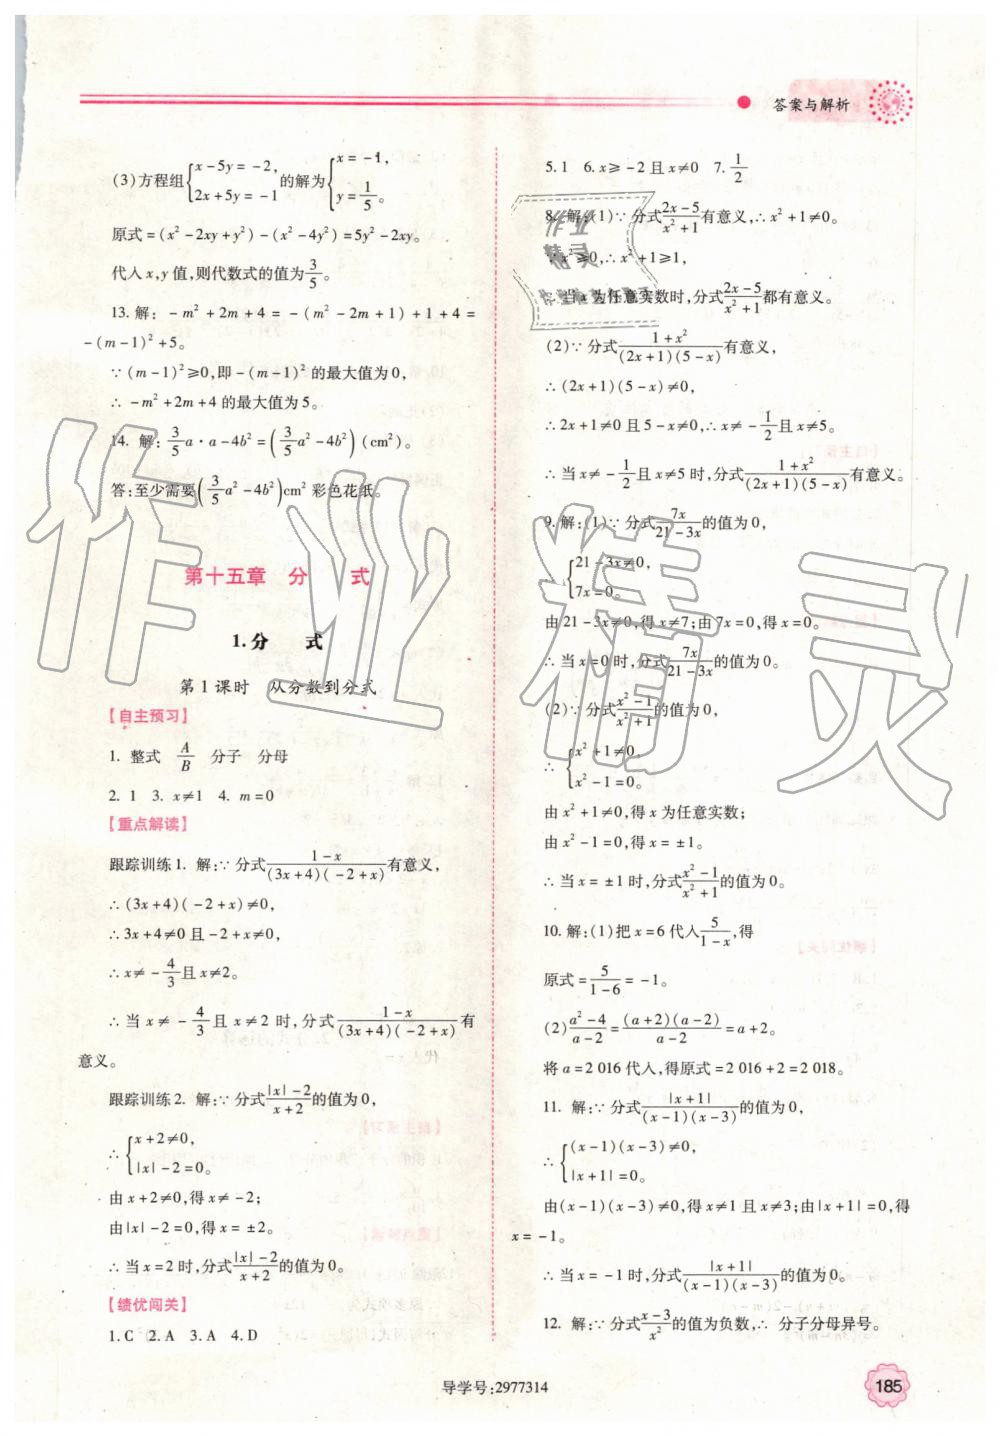 答案与解析
(3)方程组{x-5y=-2, 2x+5y=-1 的解为{x=-1, y=1/5。
原式=(x²-2xy+y²)-(x²-4y²)=5y²-2xy。
代入x,y值,则代数式的值为3/5。
13.解:-m²+2m+4=-(m²-2m+1)+1+4=
-(m-1)²+5。
∵(m-1)²≥0,即-(m-1)²的最大值为0,
∴-m²+2m+4的最大值为5。
14. 解:3/5a·a-4b²=(3/5a²-4b²)(cm²)。
答:至少需要(3/5a²-4b²)cm²彩色花纸。
第十五章 分 式
1.分 式
第1课时 从分数到分式
【自主预习】
1. 整式 A/B 分子 分母
2. 1 3. x≠1 4. m=0
【重点解读】
跟踪训练1. 解:∵分式(1-x)/((3x+4)(-2+x))有意义,
∴(3x+4)(-2+x)≠0,
∴3x+4≠0且-2+x≠0,
∴x≠-4/3且x≠2。
∴当x≠-4/3且x≠2时,分式(1-x)/((3x+4)(-2+x))有
意义。
跟踪训练2. 解:∵分式(|x|-2)/(x+2)的值为0,
∴{x+2≠0, |x|-2=0。
由x+2≠0,得x≠-2;
由|x|-2=0,得x=±2。
∴当x=2时,分式(|x|-2)/(x+2)的值为0。
【绩优闯关】
1.C 2.A 3.A 4.D
5.1 6.x≥-2且x≠0 7.1/2
8. 解:(1)∵分式(2x-5)/(x²+1)有意义,∴x²+1≠0。
∵x²≥0,∴x²+1≥1,
∴当x为任意实数时,分式(2x-5)/(x²+1)都有意义。
(2)∵分式(1+x²)/((2x+1)(5-x))有意义,
∴(2x+1)(5-x)≠0,
∴2x+1≠0且5-x≠0,∴x≠-1/2且x≠5。
∴当x≠-1/2且x≠5时,分式(1+x²)/((2x+1)(5-x))有意义。
9.解:(1)∵分式7x/(21-3x)的值为0,
∴{21-3x≠0, 7x=0。
由21-3x≠0,得x≠7;由7x=0,得x=0。
∴当x=0时,分式7x/(21-3x)的值为0。
(2)∵分式(x²-1)/(x²+1)的值为0,
∴{x²+1≠0, x²-1=0。
由x²+1≠0,得x为任意实数;
由x²-1=0,得x=±1。
∴当x=±1时,分式(x²-1)/(x²+1)的值为0。
10.解:(1)把x=6代入5/(1-x),得
原式=5/(1-6)=-1。
(2)(a²-4)/(a-2)=((a+2)(a-2))/(a-2)=a+2。
将a=2 016代入,得原式=2 016+2=2 018。
11. 解:∵分式|x+1|/((x-1)(x-3))的值为0,
∴{(x-1)(x-3)≠0, |x+1|=0。
由(x-1)(x-3)≠0,得x≠1且x≠3;由|x+1|=0,得
x=-1。
∴当x=-1时,分式|x+1|/((x-1)(x-3))的值为0。
12. 解:∵分式(x-3)/x²的值为负数,∴分子分母异号。
导学号:2977314
185
作业精灵
作业
精灵